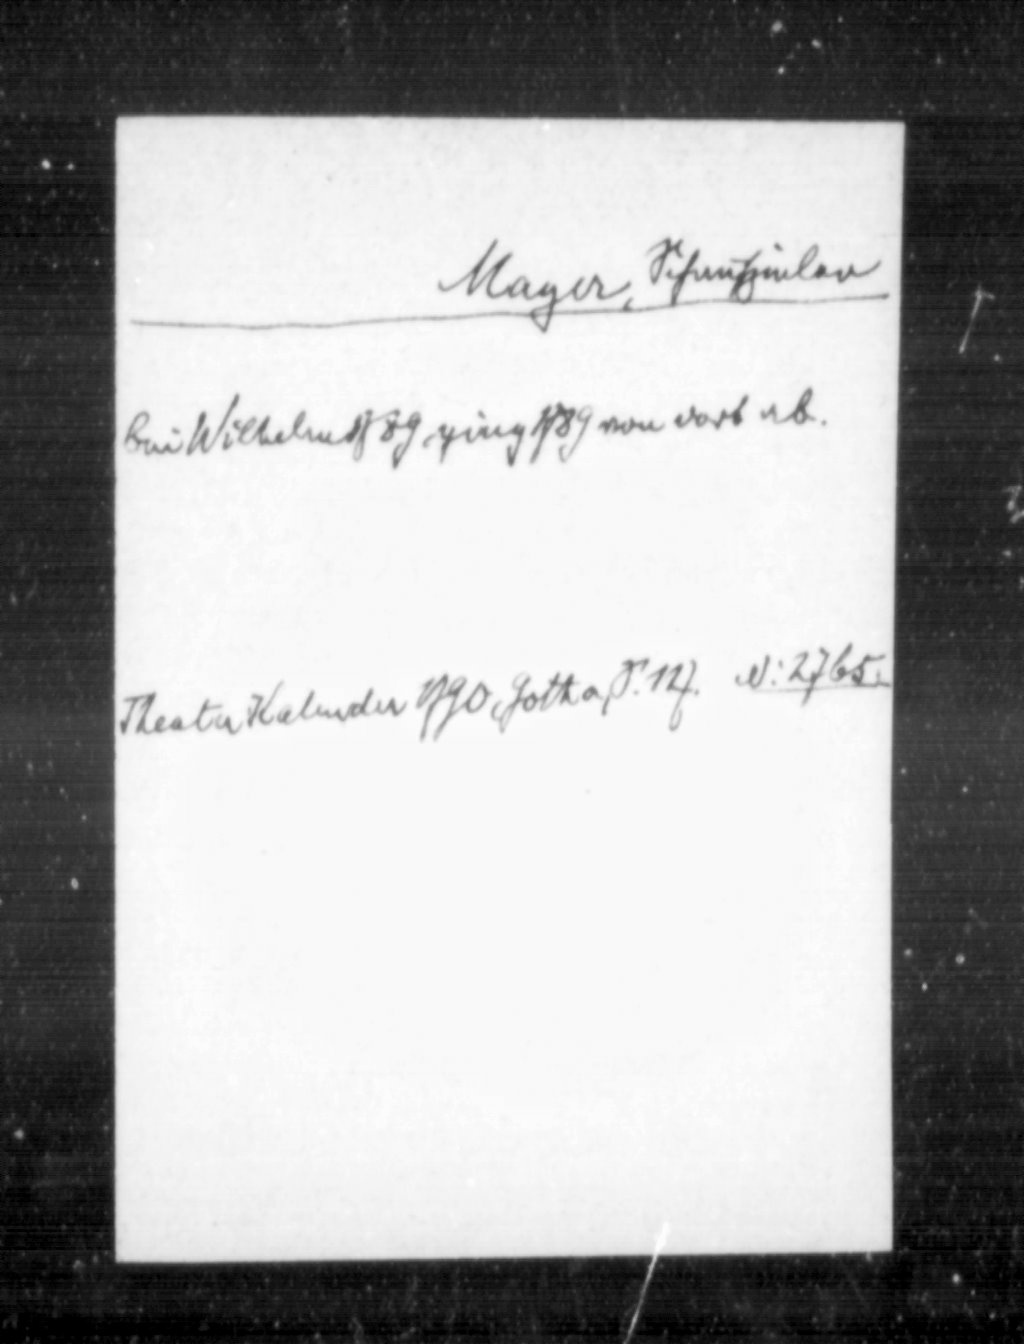 Mayer, Schauspieler
bei Wilhelm 1789 ging 1789 von dort ab.
Theater Kalender 1790, Gotha, S. 127. N: 2765.